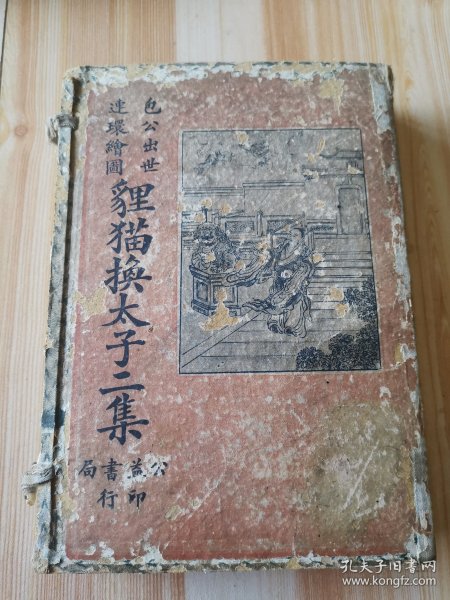 包公出世
連環繪圖
貍猫換太子二集
公益書局
印行
孔夫子旧书网
www.kongfz.com